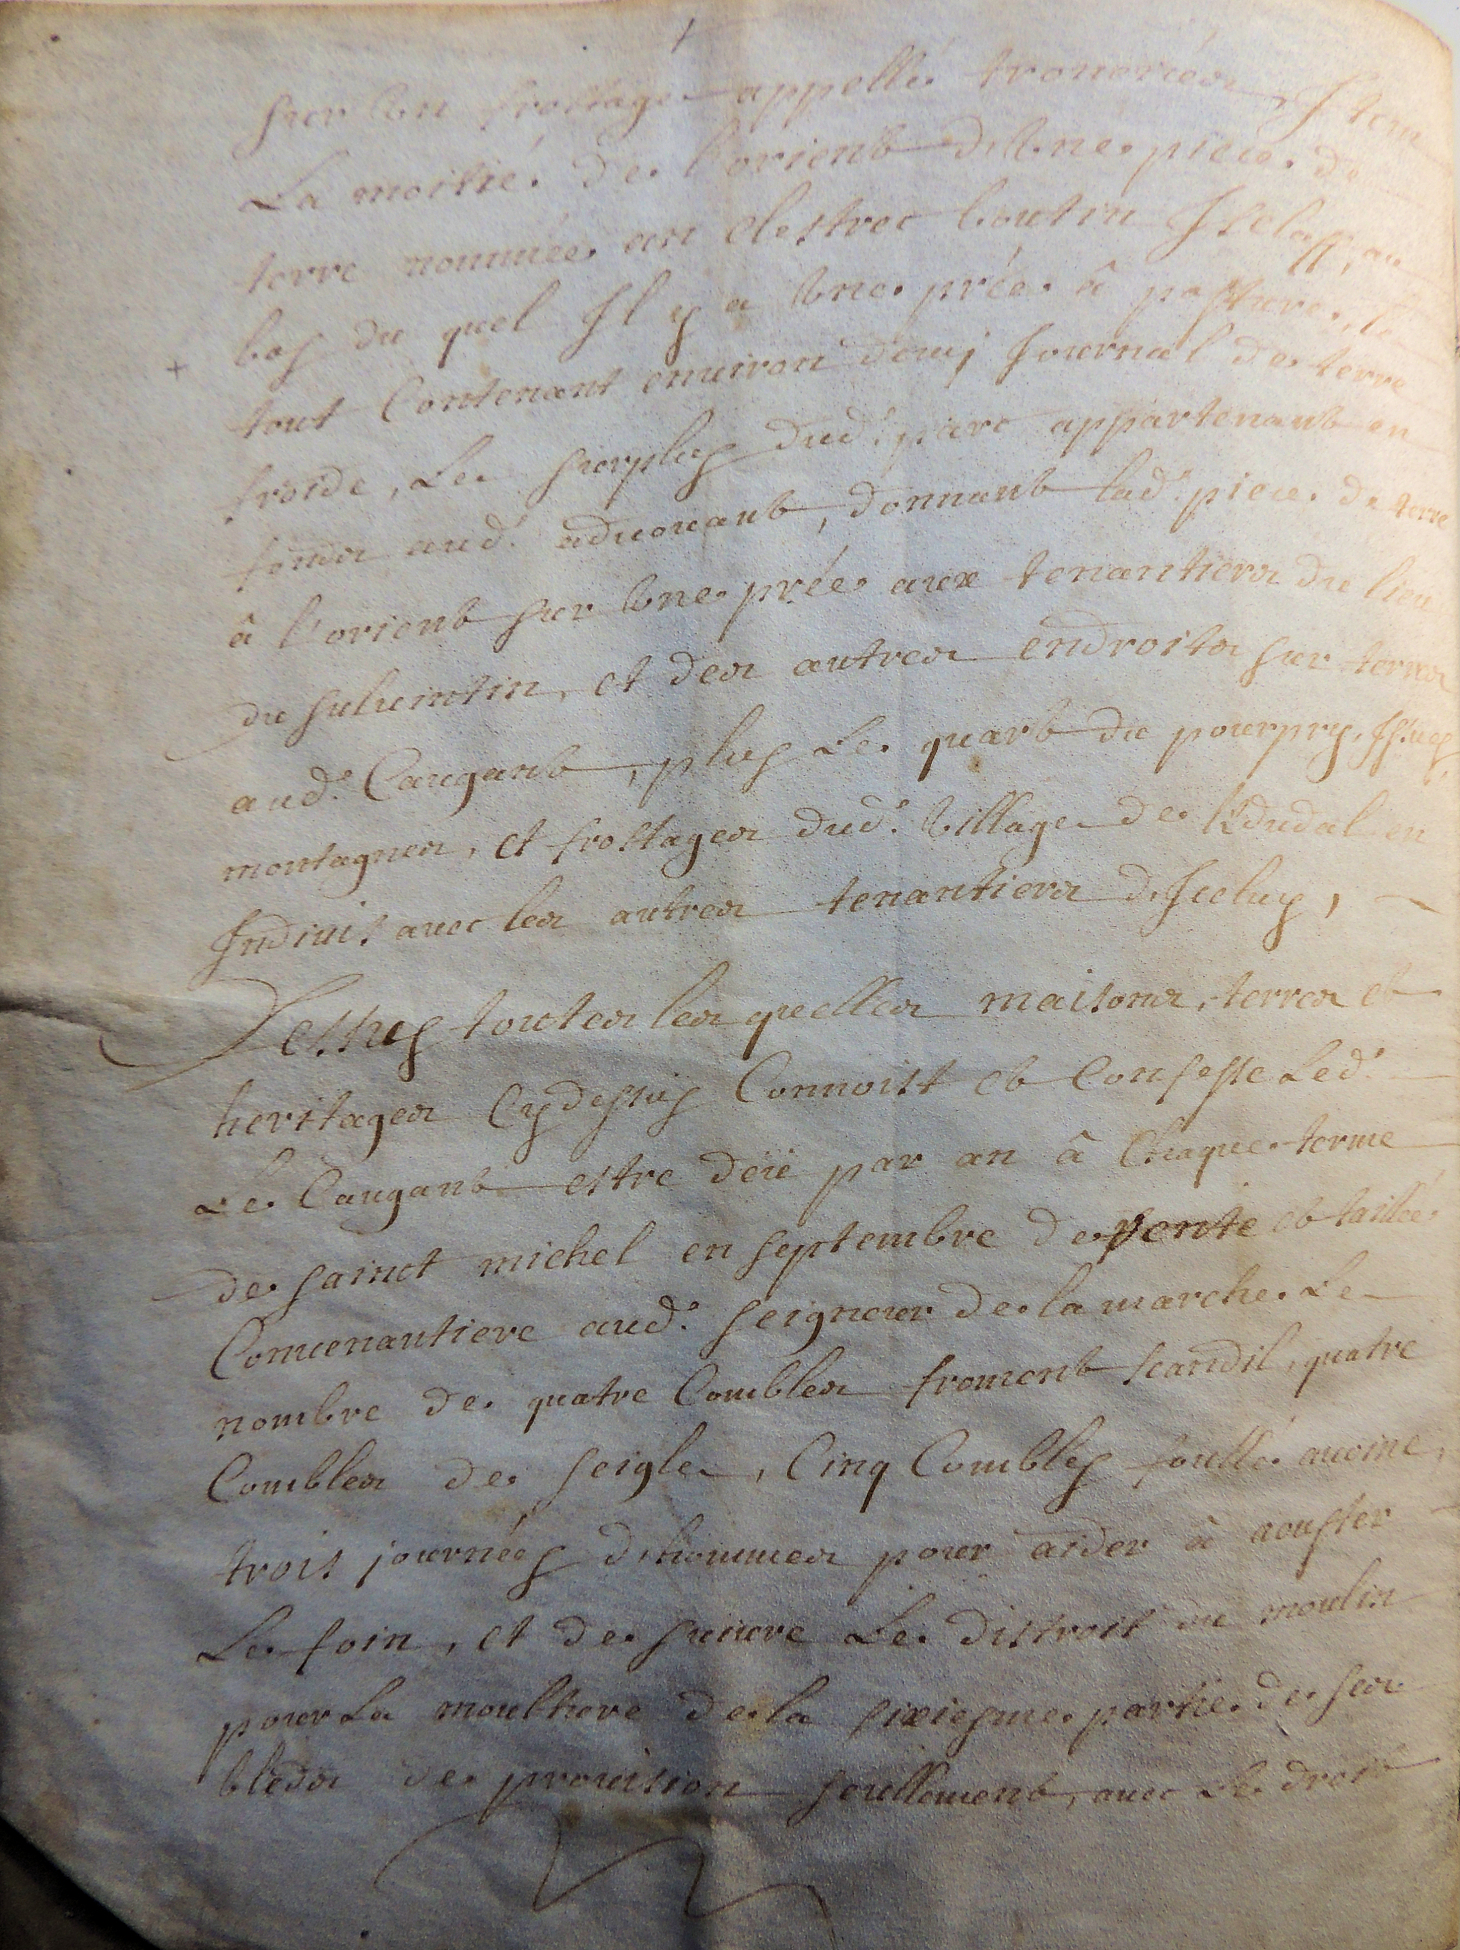 sur un frostage appellé tronoriou, Item
La moitié de l'orient d'une piece de
terre nommée an clestrec boutin Iselaff, au
bas du quel Il y a une prée â pasture, le
tout Contenant enuiron demj Journal de terre
froide, Le surplus dud. parc appartenant en
fonds aud. aduouant, donnant lad. piece de terre
â l'orient sur une prée aux tenantiers du lieu
du suluintin, et des autres endroits sur terres
aud. Caugant, plus Le quart du pourpry, Issues,
montagnes, et frostages dud. Village de Kdudal en
Indiuis auec les autres tenantiers d'Iceluy,
Desus toutes les quelles maisons, terres et
heritages Cy dessus Connoist et Confesse Led.
Le Caugant estre deü par an â Chaque terme
de sainct michel en septembre de rente et taillée
Conuenantiere aud. seigneur de la marche Le
nombre de quatre Combles froment scandil, quatre
Combles de seigle, Cinq Combles foullé auoine,
trois journées d'hommes pour aider â aouster
Le foin, et de suiure Le distroit du moulin
pour La moulture de la sixiesme partie de ses
bleds de prouision seullement, auec Le droit